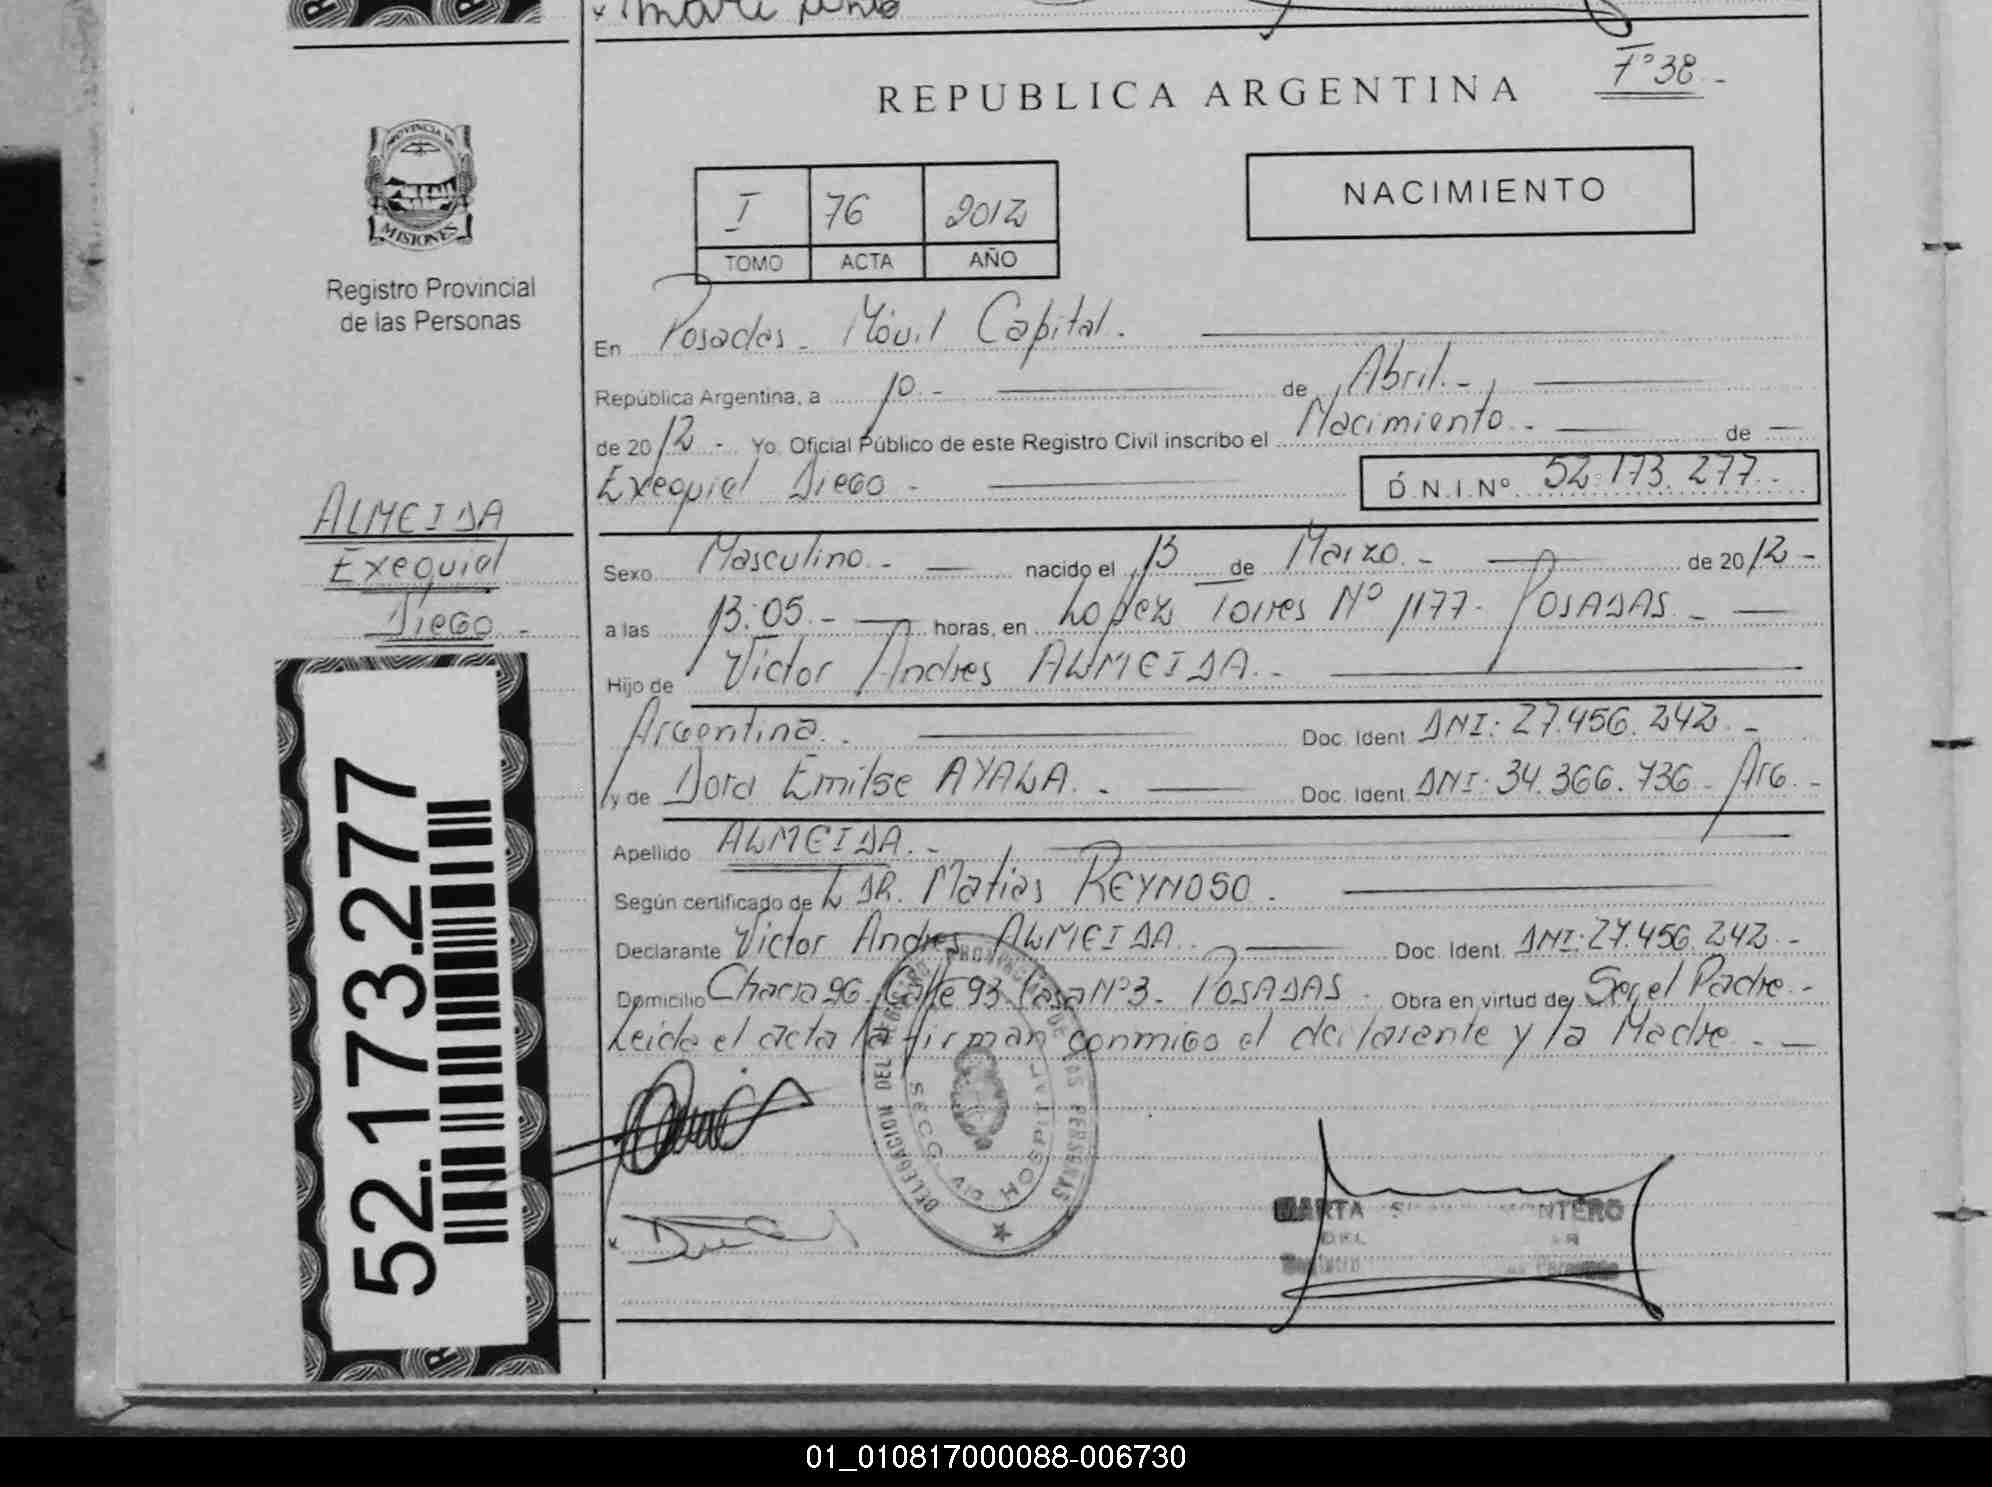 F° 38.-
REPUBLICA ARGENTINA
PROVINCIA DE
MISIONES
Registro Provincial
de las Personas
NACIMIENTO
I 76 2012
TOMO ACTA AÑO
En Posadas - Móvil Capital.
República Argentina, a 10.- de Abril.-
de 2012 - Yo, Oficial Público de este Registro Civil inscribo el Nacimiento.- de
Exequiel Diego - D.N.I.Nº 52.173.277.-
ALMEIDA
Exequiel
Diego -
Sexo Masculino.- nacido el 13 de Marzo.- de 2012 -
a las 13:05.- horas, en Lopez Torres Nº 1177- POSADAS.-
Hijo de Victor Andres ALMEIDA.-
Argentina.- Doc. Ident. DNI: 27.456.242.-
y de Dora Emilse AYALA.- Doc. Ident. DNI: 34.366.736- Arg.-
Apellido ALMEIDA.-
Según certificado de DR. Matias REYNOSO.
Declarante Victor Andres ALMEIDA.- Doc. Ident. DNI: 27.456.242.-
Domicilio Chacra 96. Calle 93. Casa Nº3- POSADAS. Obra en virtud de Ser el Padre.-
Leida el acta la firman conmigo el declarante y la Madre.-
52.173.277
DELEGACION DEL REGISTRO PROVINCIAL DE LAS PERSONAS
MARTA MONTERO
01_010817000088-006730